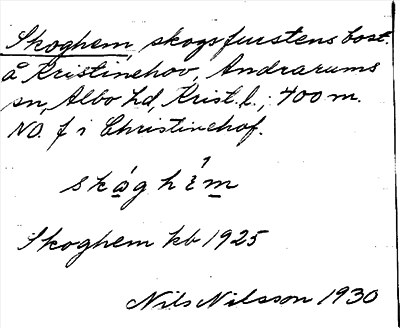 Skoghem, skogsfurstens bost.
å Kristinehov, Andrarums
sn, Albo hd, Krist. l.; 700 m.
NO. f i Christinehof.
skóghèm
Skoghem kb 1925
Nils Nilsson 1930